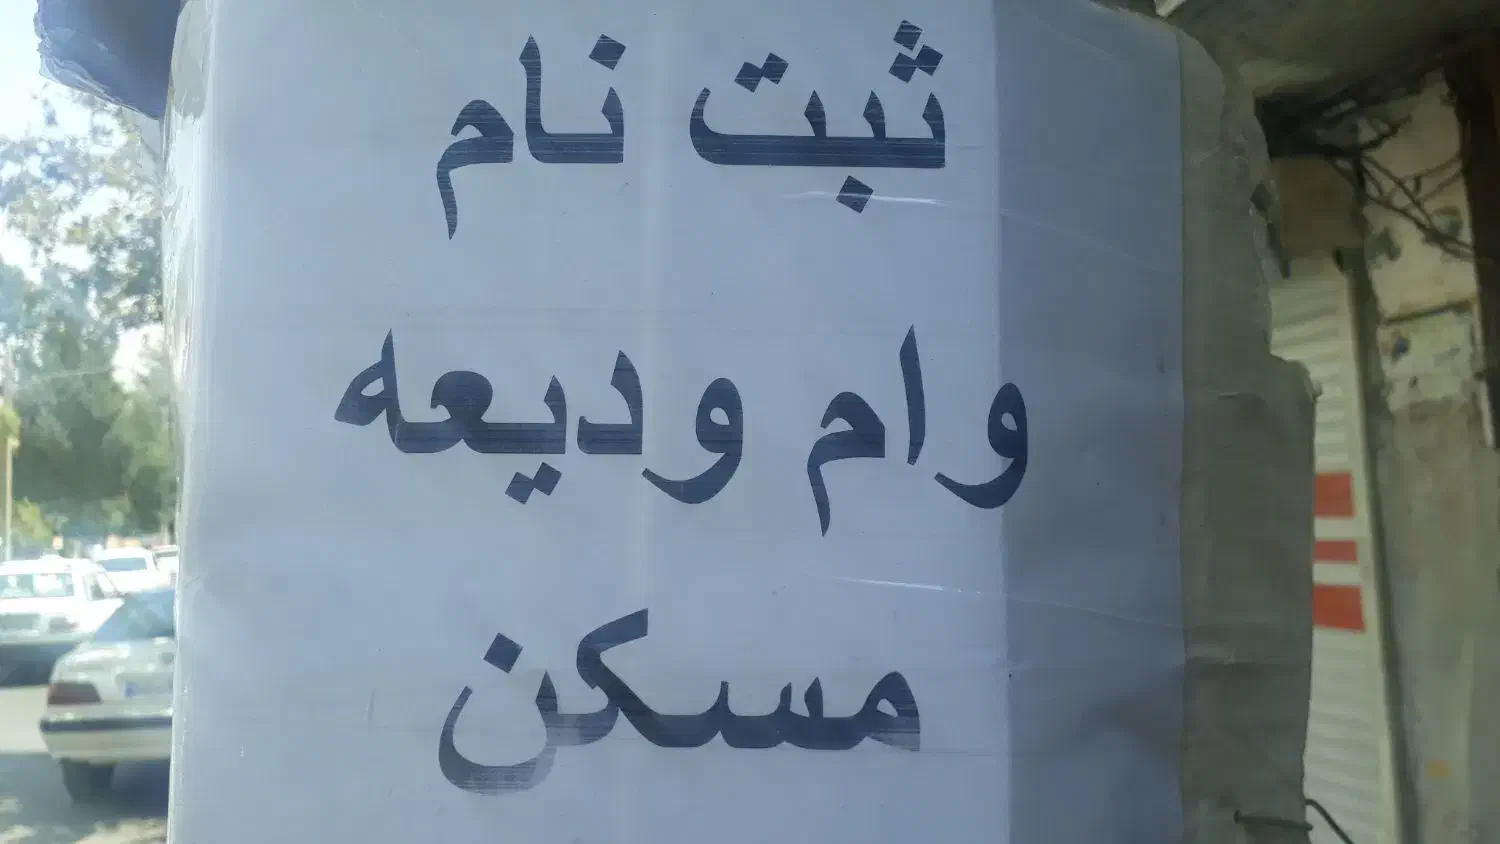 ثبت نام
وام ودیعه
مسکن